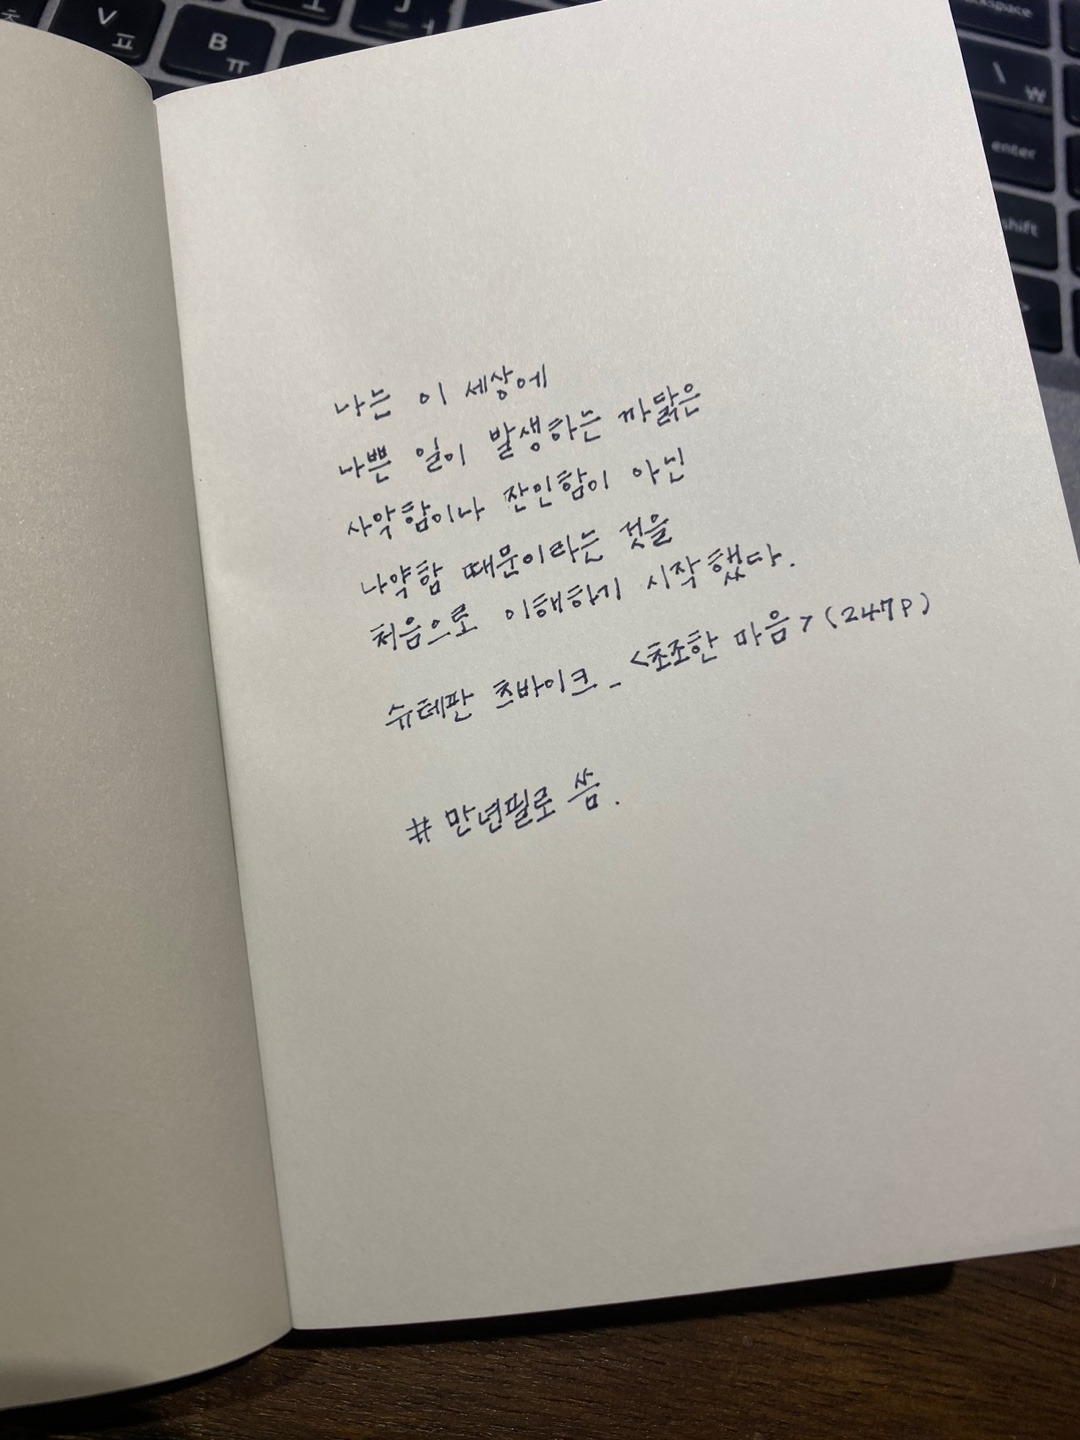 V
ㅍ
B
ㅠ
\
₩
enter
shift
나는 이 세상에
나쁜 일이 발생하는 까닭은
사악함이나 잔인함이 아닌
나약함 때문이라는 것을
처음으로 이해하기 시작했다.
슈테판 츠바이크_<초조한 마음>(247P)
# 만년필로 씀.